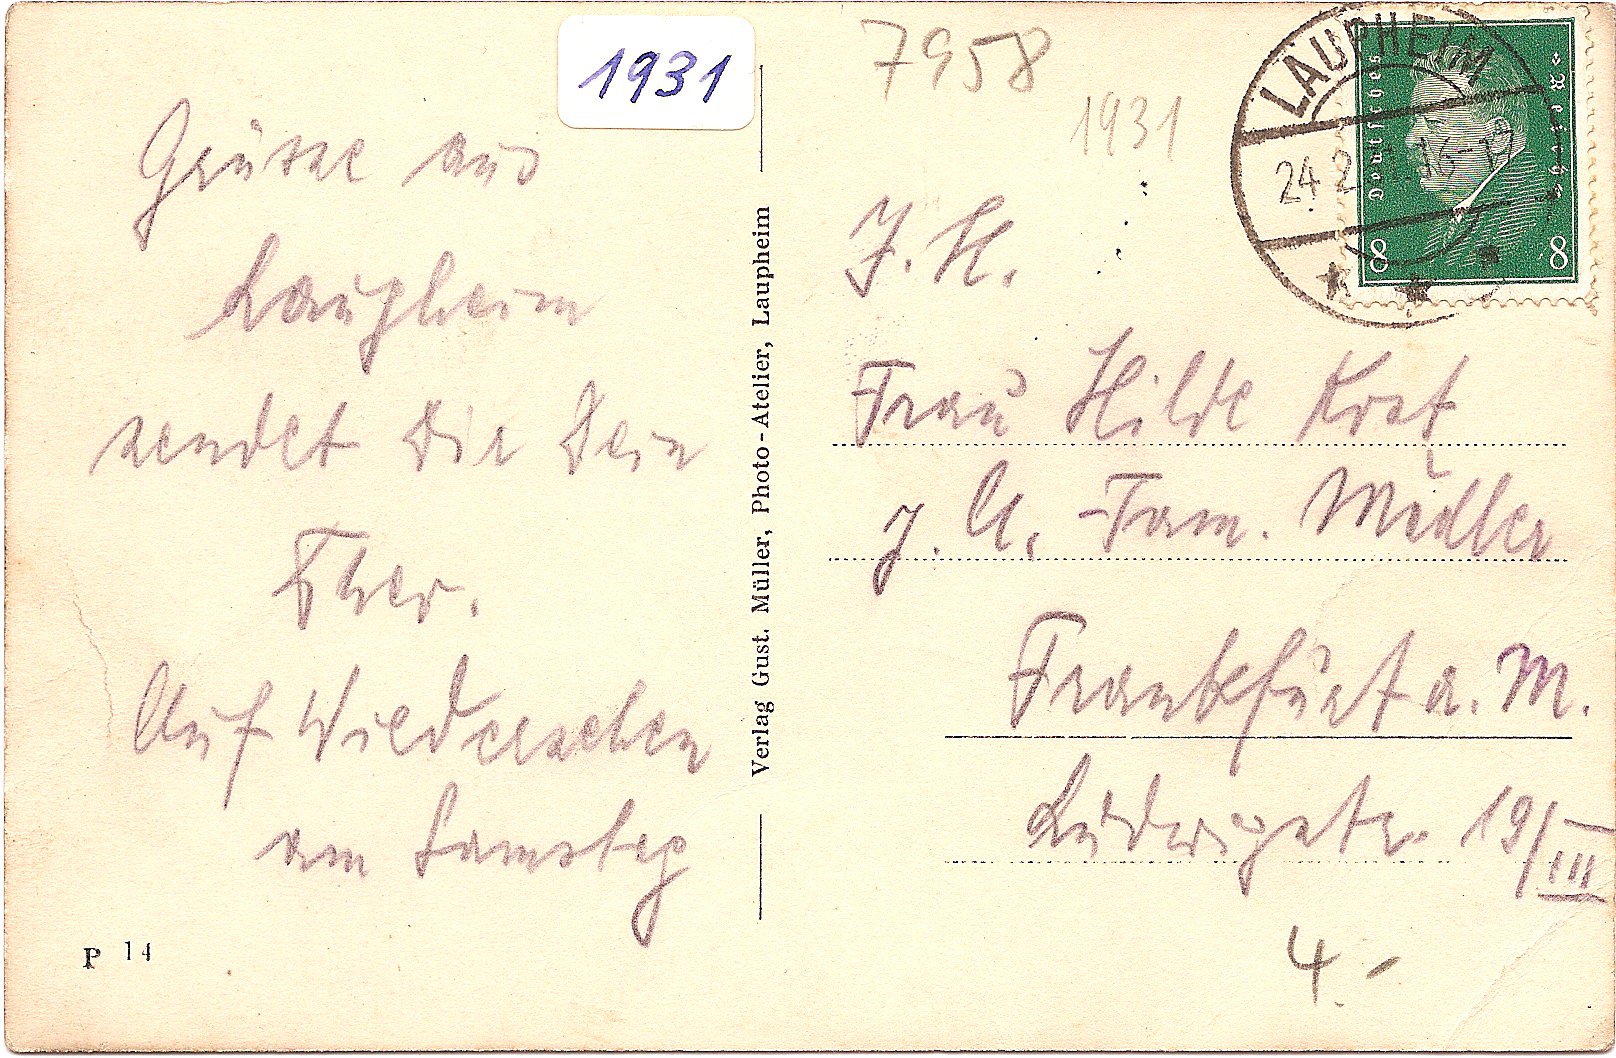 1931
Grüsse aus
Laupheim
sendet Dir Dein
Ther.
Auf Wiedersehen
am Samstag
P 14
Verlag Gust. Müller, Photo-Atelier, Laupheim
7958
1931
LAUPHEIM
24. 2. 16-17
Deutsches Reich
8 8
J. H.
Frau Hilde
z. H. Fam. Müller
Frankfurt a. M.
Ludwigstr. 19/III
4.-